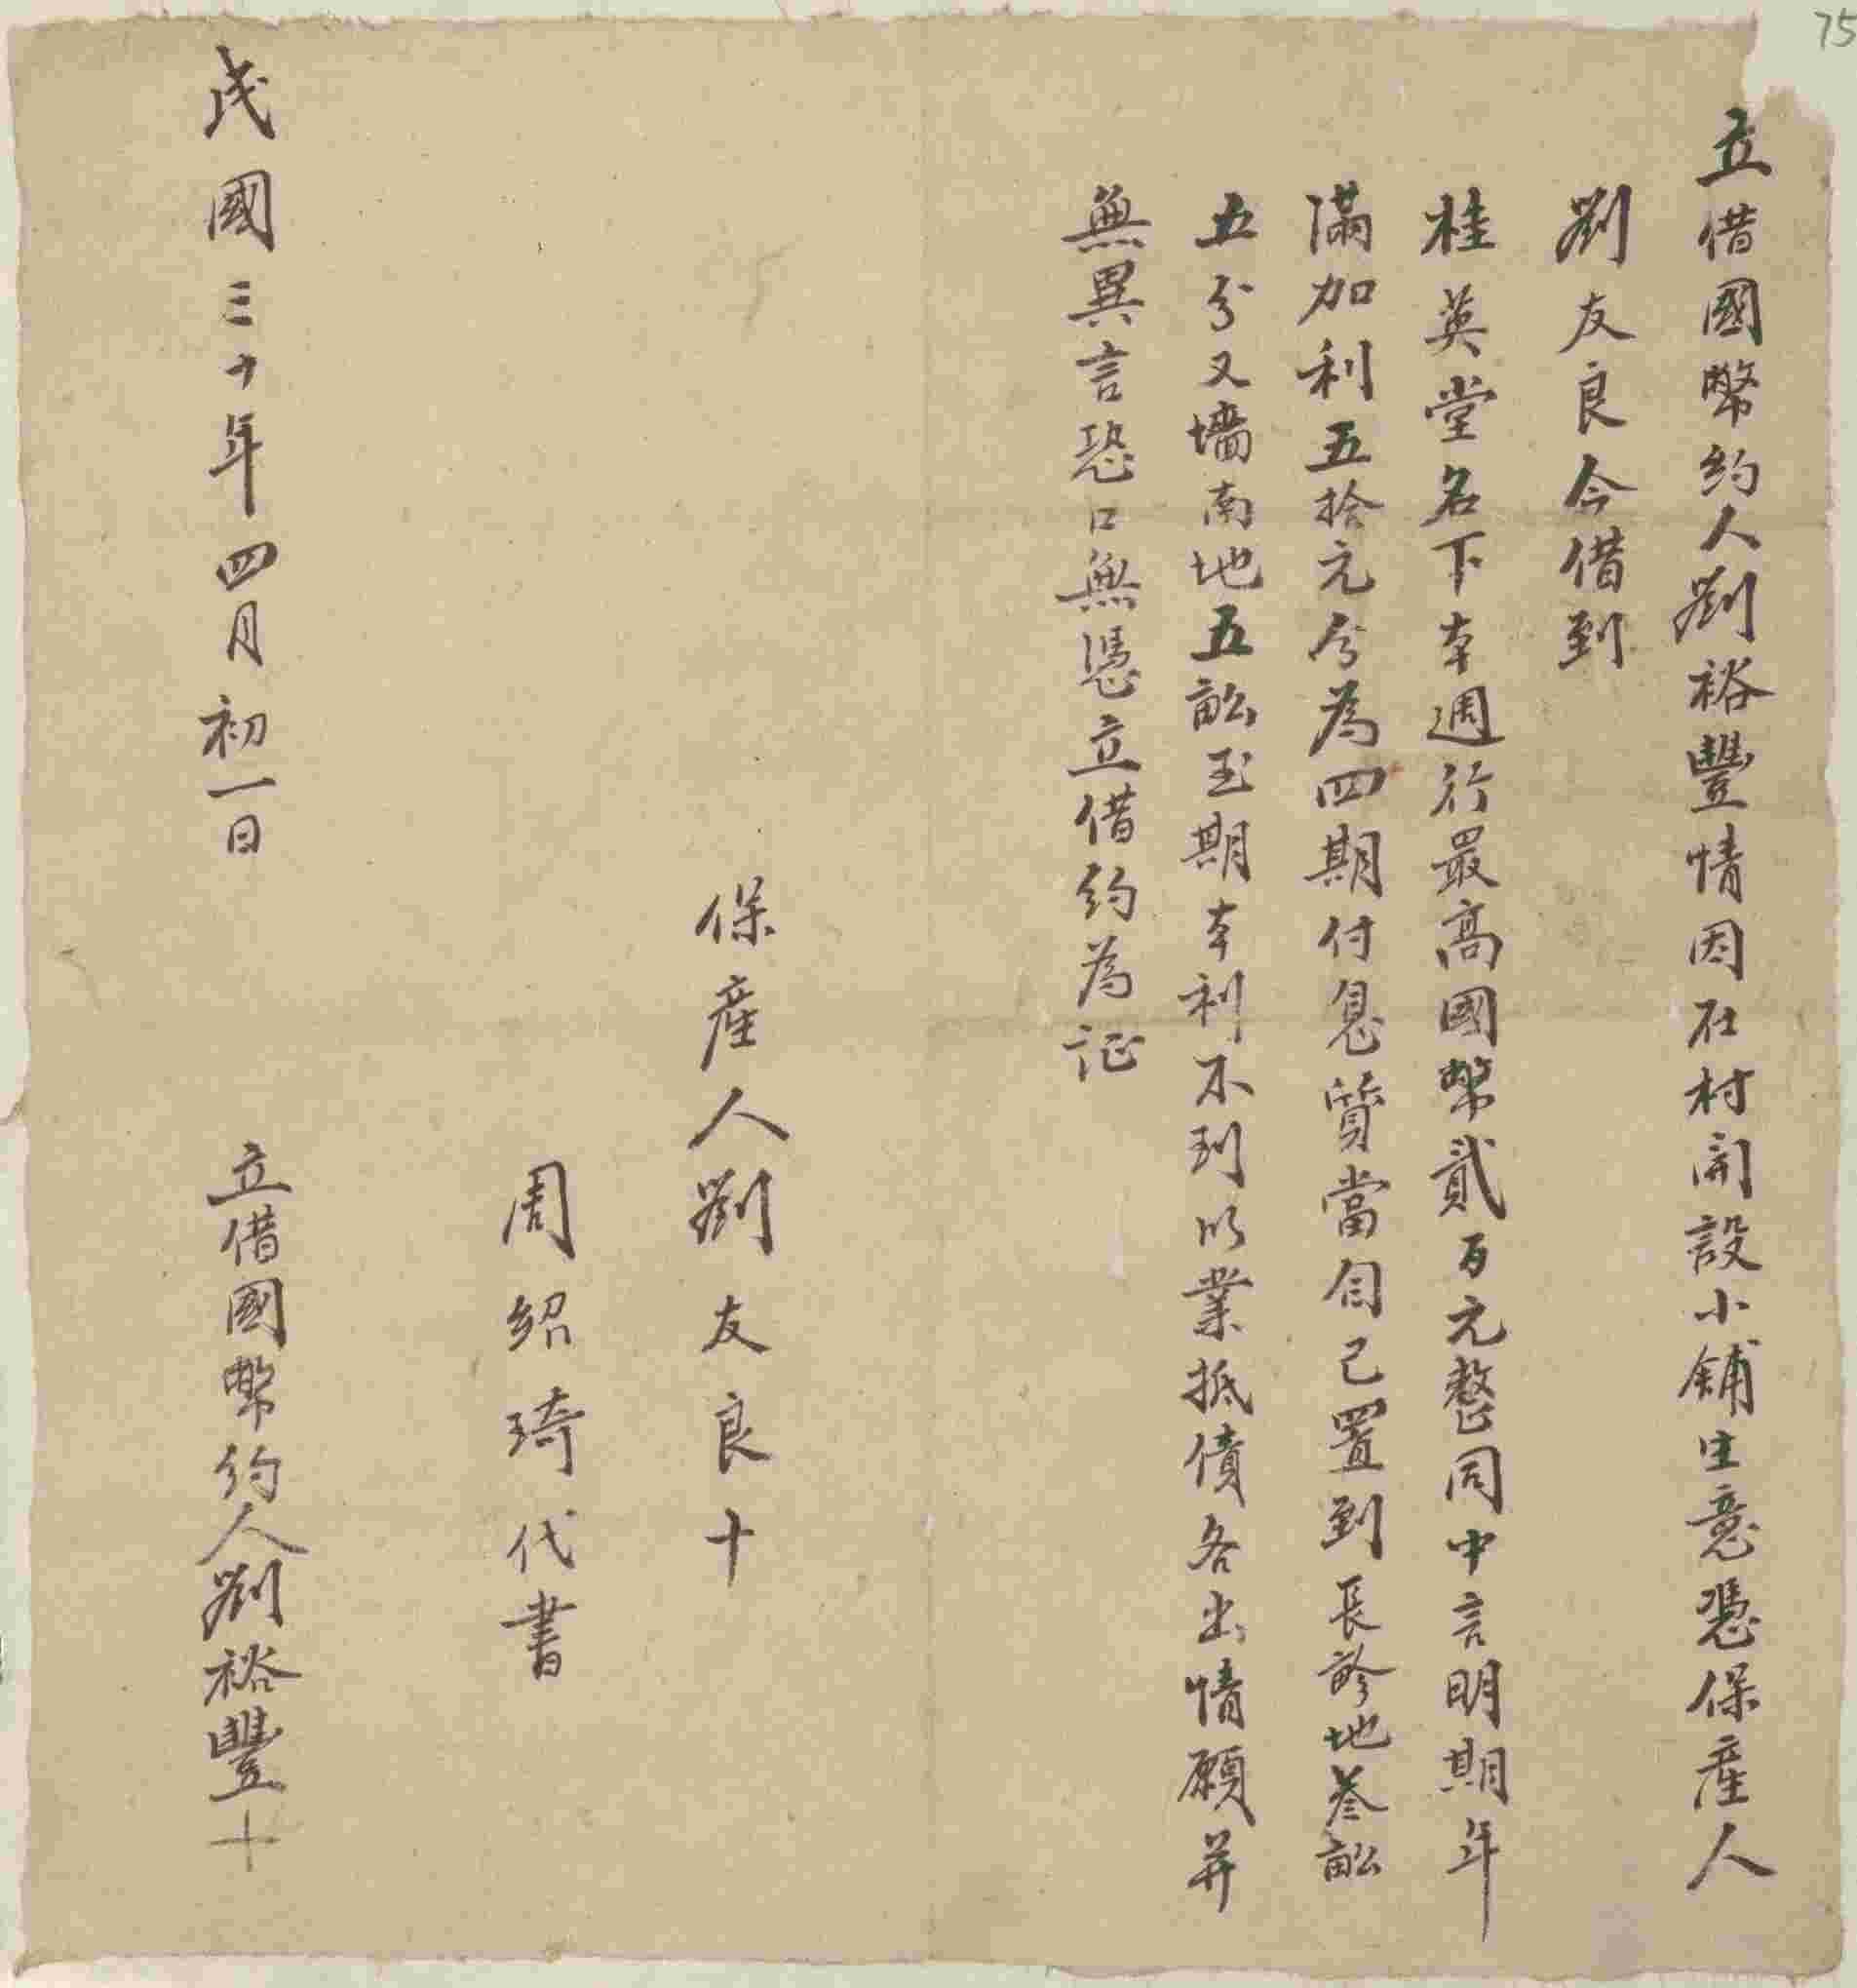 75
立借國幣約人劉裕豐情因在村開設小鋪生意憑保產人
劉友良今借到
桂英堂名下本週行最高國幣貳百元整同中言明期年
滿加利五拾元分為四期付息質當自己置到長畛地叁畝
五分又墻南地五畝至期本利不到以業抵債各出情願并
無異言恐口無憑立借約為证
保產人劉友良十
周紹琦代書
民國三十年四月初一日
立借國幣約人劉裕豐十